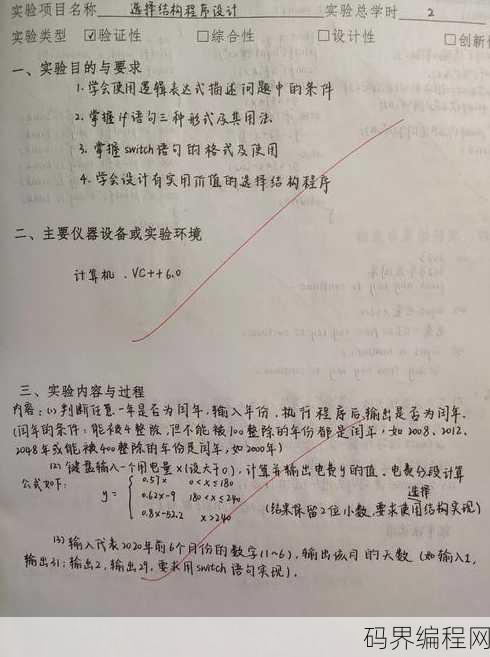 实验项目名称 选择结构程序设计 实验总学时 2
实验类型 ☑验证性 □综合性 □设计性 □创新
一、实验目的与要求
1.学会使用逻辑表达式描述问题中的条件
2.掌握if语句三种形式及其用法
3.掌握switch语句的格式及使用
4.学会设计有实用价值的选择结构程序
二、主要仪器设备或实验环境
计算机、VC++6.0
三、实验内容与过程
内容:(1)判断任意一年是否为闰年,输入年份,执行程序后输出是否为闰年.
(闰年的条件:能被4整除,但不能被100整除的年份都是闰年,如2008、2012、
2048年或能被400整除的年份是闰年,如2000年)
(2)键盘输入一个用电量x(设大于0),计算并输出电费y的值,电费分段计算
公式如下: 0.57x 0<x≤180
y= 0.62x-9 180<x≤240
0.8x-52.2 x>240
选择
(结果保留2位小数,要求使用结构实现)
(3)输入代表2020年前6个月份的数字(1~6),输出该月的天数(如输入1,
输出31;输出2,输出29,要求用switch语句实现).
码界编程网